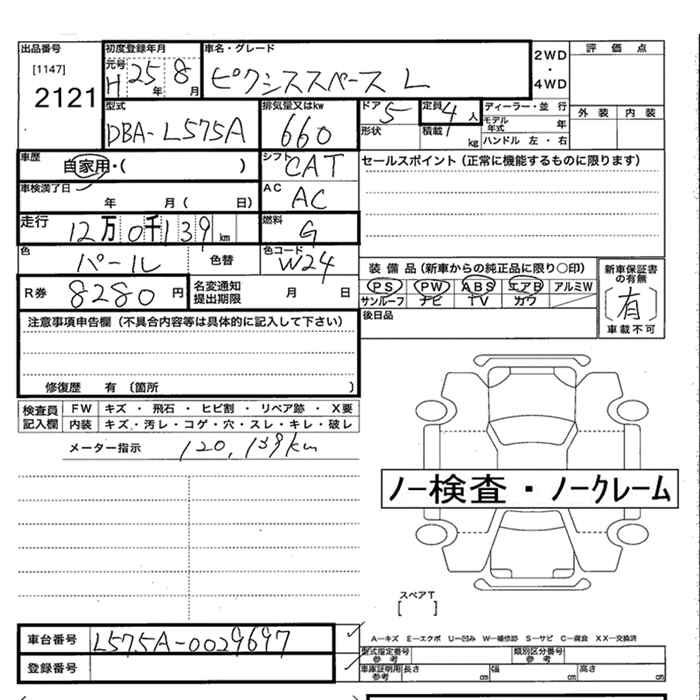 出品番号
[1147]
2121
初度登録年月
元号
H 25年 8月
車名・グレード
ピクシススペース L
2WD
・
4WD
評 価 点
外 装 内 装
型式
DBA-L575A
排気量又はkw
660
ドア 5
定員 4 人
形状
積載 kg
ディーラー・並 行
モデル年式 年
ハンドル 左・右
車歴
自家用・( )
シフト CAT
車検満了日
年 月 ( 日)
AC AC
走行
12万0千139km
燃料 G
色 パール 色替
色コード W24
R券 8280 円
名変通知
提出期限 月 日
セールスポイント (正常に機能するものに限ります)
装 備 品 (新車からの純正品に限り○印)
PS PW ABS エアB アルミW
サンルーフ ナビ TV カワ
後日品
新車保証書
の有無
[有]
車載不可
注意事項申告欄 (不具合内容等は具体的に記入して下さい)
修復歴 有 〔箇所 〕
検査員
記入欄
FW キズ ・ 飛石 ・ ヒビ割 ・ リペア跡 ・ X要
内装 キズ・汚レ・コゲ・穴・スレ・キレ・破レ
メーター指示 120,139km
ノー検査・ノークレーム
スペアT
[ ]
車台番号 L575A-0029697
登録番号
A―キズ E―エクボ U―凹み W―補修跡 S―サビ C―腐食 XX―交換済
型式指定番号
参 考
類別区分番号
参 考
車庫証明用
参考
長さ cm 幅 cm 高さ cm